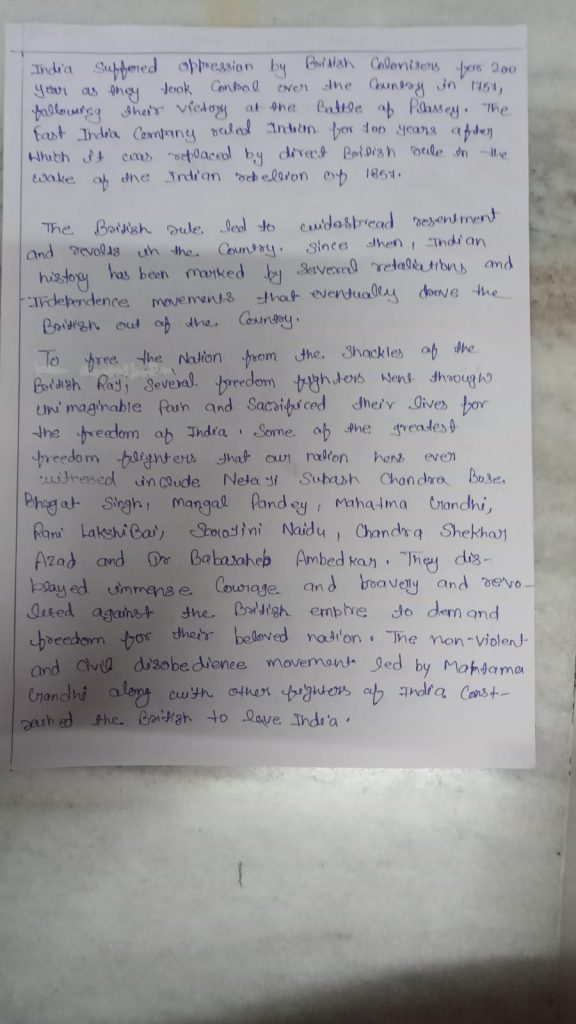 India Suffered oppression by British Colonisers for 200
year as they took Control over the Country in 1757,
following their victory at the Battle of Plassey. The
East India Company ruled Indian for 100 years after
which it was replaced by direct British rule in the
wake of the Indian rebellion of 1857.
The British rule led to widespread resentment
and revolts in the Country. Since then, Indian
history has been marked by Several retaliations and
Independence movements that eventually drove the
British out of the Country.
To free the Nation from the Shackles of the
British Raj, Several freedom fighters Went through
unimaginable Pain and Sacrificed their lives for
the freedom of India. Some of the greatest
freedom fighters that our nation has ever
witnessed include Netaji Subash Chandra Bose.
Bhagat Singh, Mangal Pandey, Mahatma Gandhi,
Rani LakshiBai, Sarojini Naidu, Chandra Shekhar
Azad and Dr Babasaheb Ambedkar. They dis-
played immense Courage and bravery and revo-
lted against the British empire to demand
freedom for their beloved nation. The non-violent
and Civil disobedience movement led by Mahtama
Gandhi along with other fighters of India Const-
rained the British to leave India.